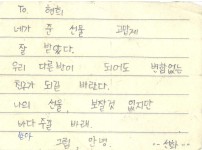 To. 현희
네가 준 선물 고맙게
잘 받았다.
우리 다른 반이 되어도 변함없는
친구가 되길 바란다.
나의 선물, 보잘것 없지만
받아 주길 바래.
그럼, 안녕.